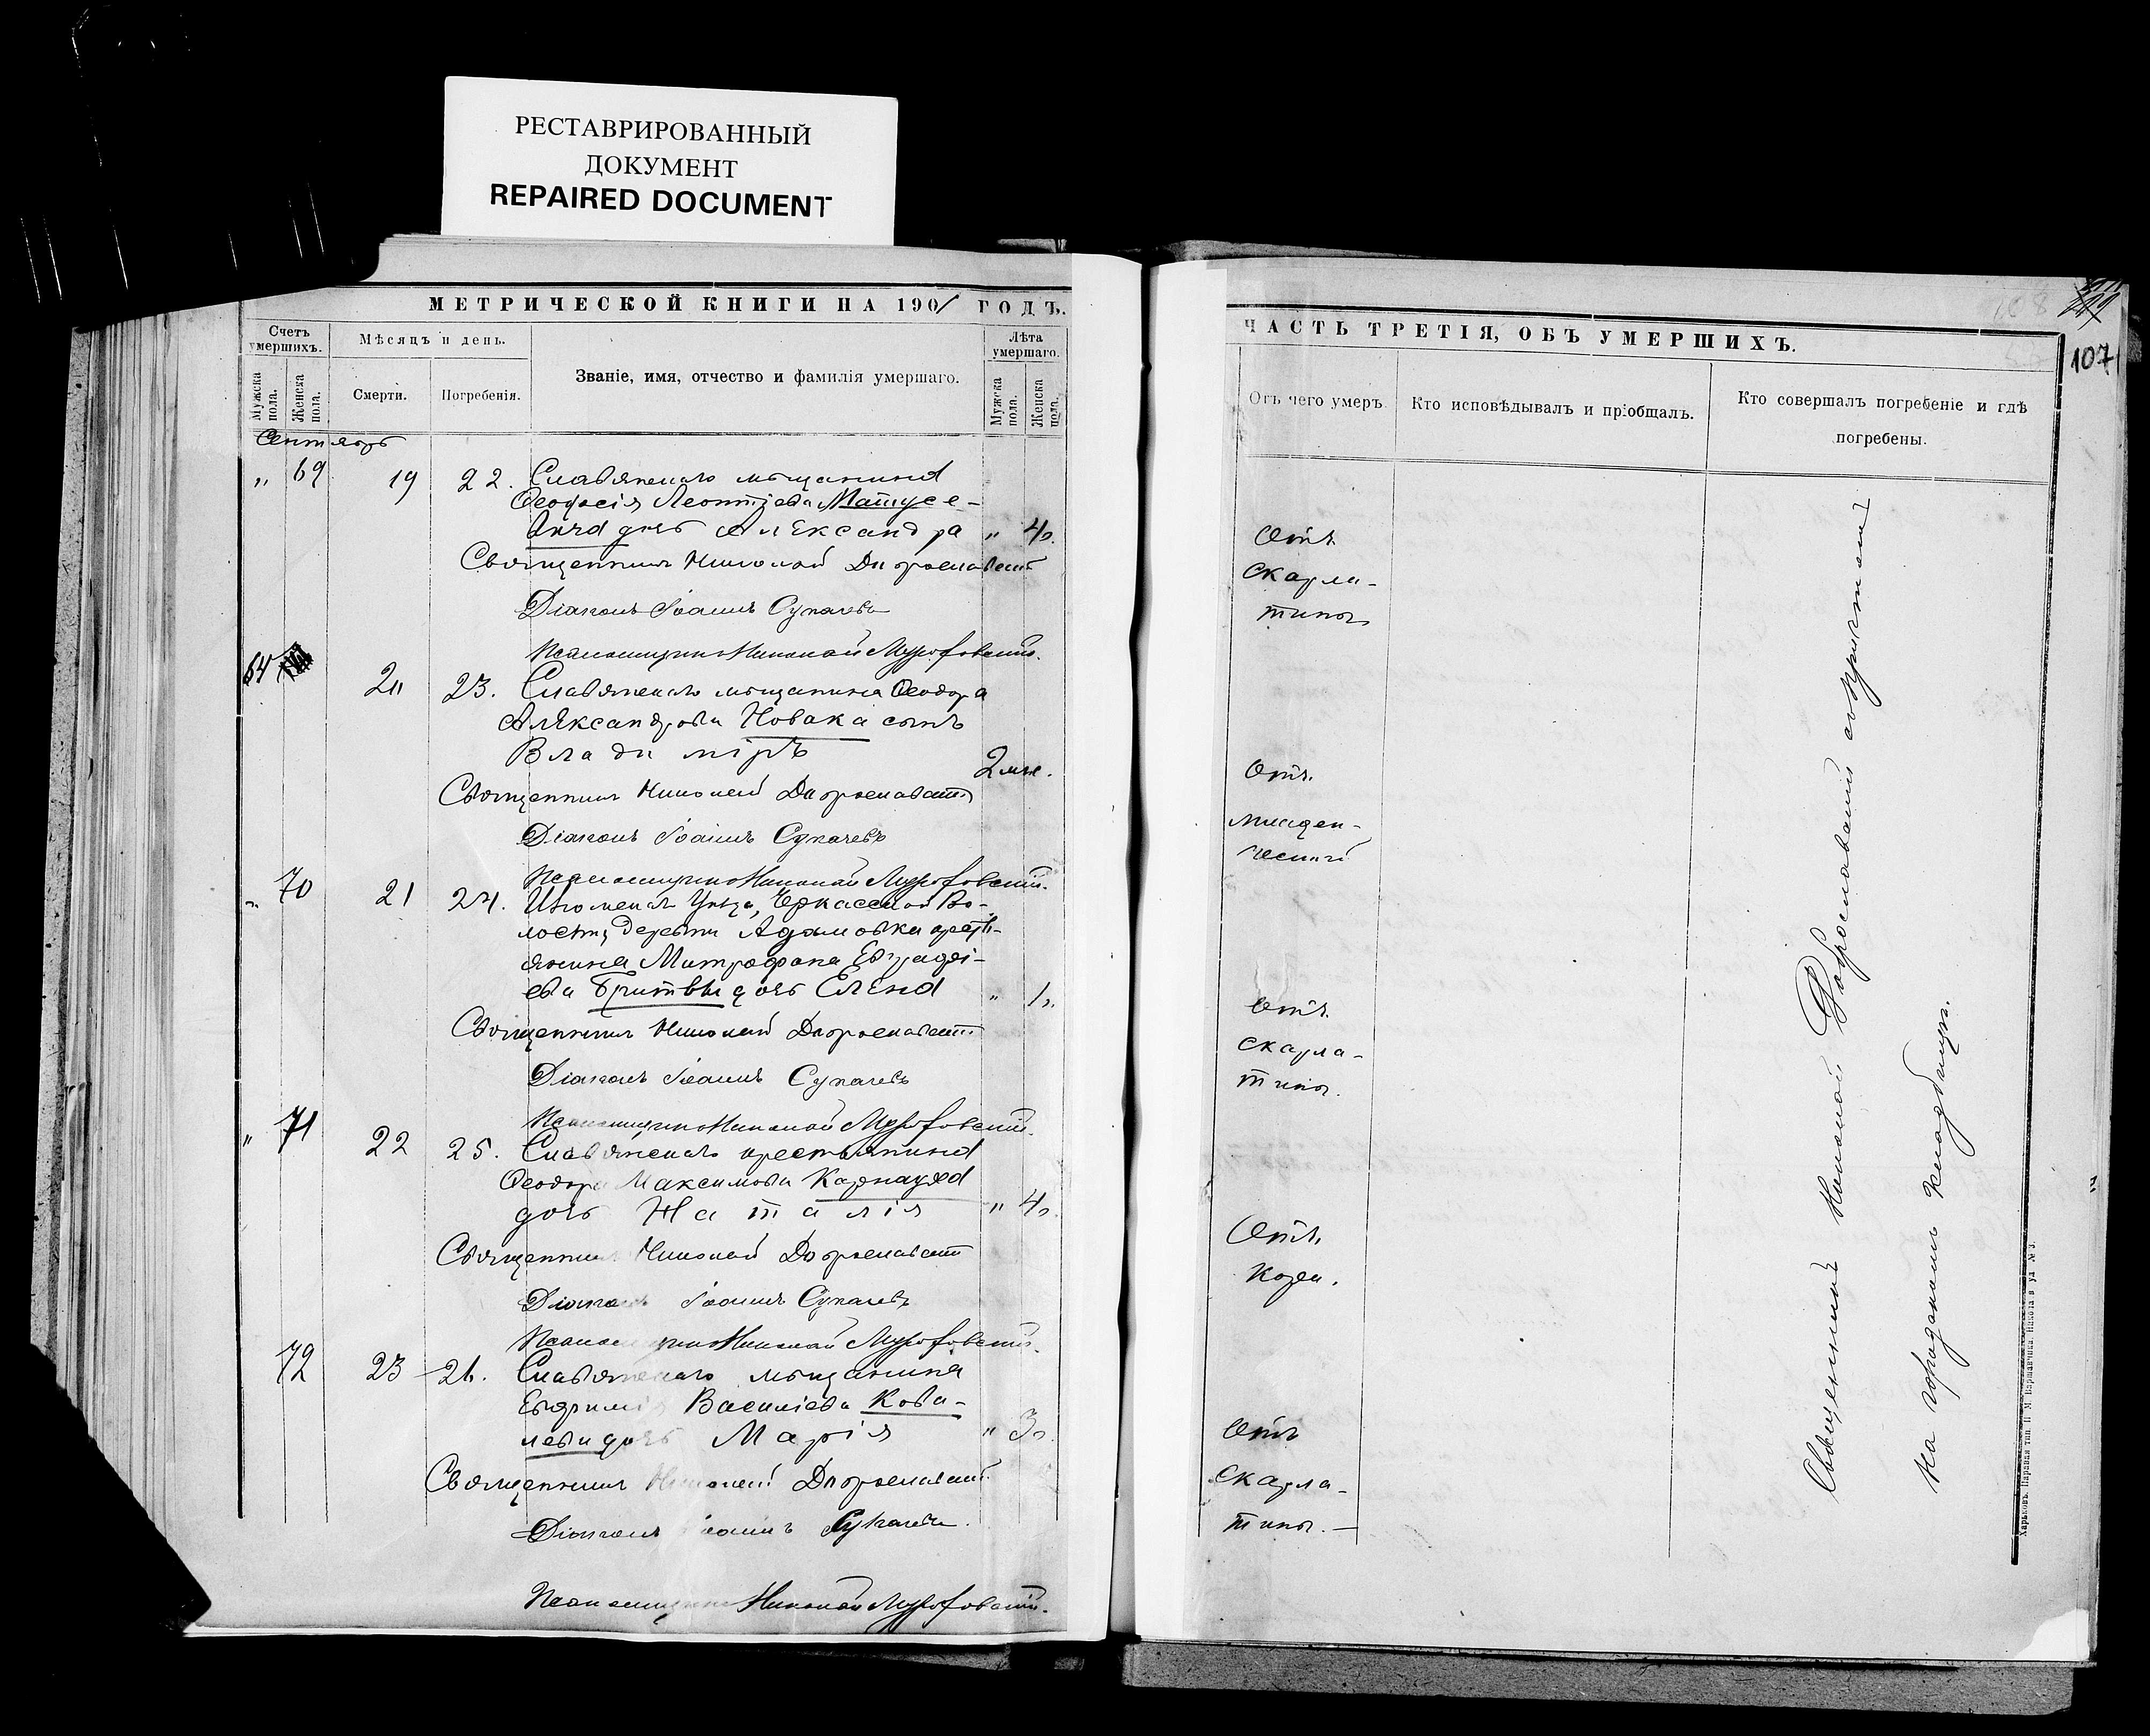 РЕСТАВРИРОВАННЫЙ
ДОКУМЕНТ
REPAIRED DOCUMENT
МЕТРИЧЕСКОЙ КНИГИ НА 1901 ГОДЪ.
Счетъ умершихъ.
Мужска пола.
Женска пола.
Мѣсяцъ и день.
Смерти.
Погребенія.
Званіе, имя, отчество и фамилія умершаго.
Лѣта умершаго.
Мужска пола.
Женска пола.
Сентябрь
„ 69 19 22. Славянскаго мѣщанина
Ѳеодосія Леонтіева Матусе-
вича дочь Александра „ 4г.
Священникъ Николай Доброславскій
Діаконъ Іоаннъ Сукачевъ
Псаломщикъ Николай
64 20 23. Славянскаго мѣщанина Ѳеодора
Александрова Новака сынъ
Владиміръ 2 мѣс.
Священникъ Николай Доброславскій
Діаконъ Іоаннъ Сукачевъ
Псаломщикъ Николай
„ 70 21 24. Изюмскаго Уѣзда, Черкасской Во-
лости, деревни Адамовки крестья-
янина Митрофана
ева Бритвы дочь Елена „ 1г.
Священникъ Николай Доброславскій
Діаконъ Іоаннъ Сукачевъ
Псаломщикъ Николай
„ 71 22 25. Славянскаго крестьянина
Ѳеодора Максимова Карнауха
дочь Наталія „ 4г.
Священникъ Николай Доброславскій
Діаконъ Іоаннъ Сукачевъ
Псаломщикъ Николай
72 23 26. Славянскаго мѣщанина
Евфимія Василіева Кова-
лева дочь Марія „ 3г.
Священникъ Николай Доброславскій
Діаконъ Іоаннъ Сукачевъ.
Псаломщикъ Николай
107
ЧАСТЬ ТРЕТІЯ, ОБЪ УМЕРШИХЪ.
Отъ чего умеръ.
Кто исповѣдывалъ и пріобщалъ.
Кто совершалъ погребеніе и гдѣ
погребены.
Отъ
скарла-
тины
Отъ
младен-
ческой
Отъ
скарла-
тины.
Отъ
кори.
Отъ
скарла-
тины. —
Священникъ Николай Доброславскій съ причтомъ
на городскомъ кладбищѣ.